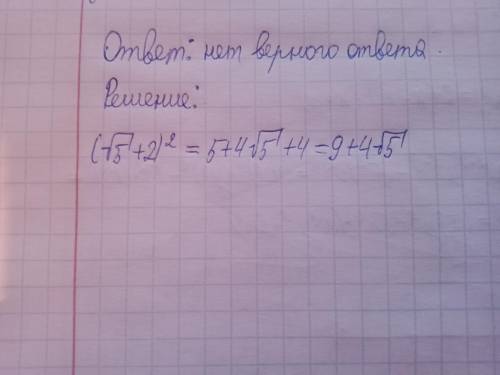 Ответ: нет верного ответа.
Решение:
(√5+2)² = 5+4√5+4=9+4√5